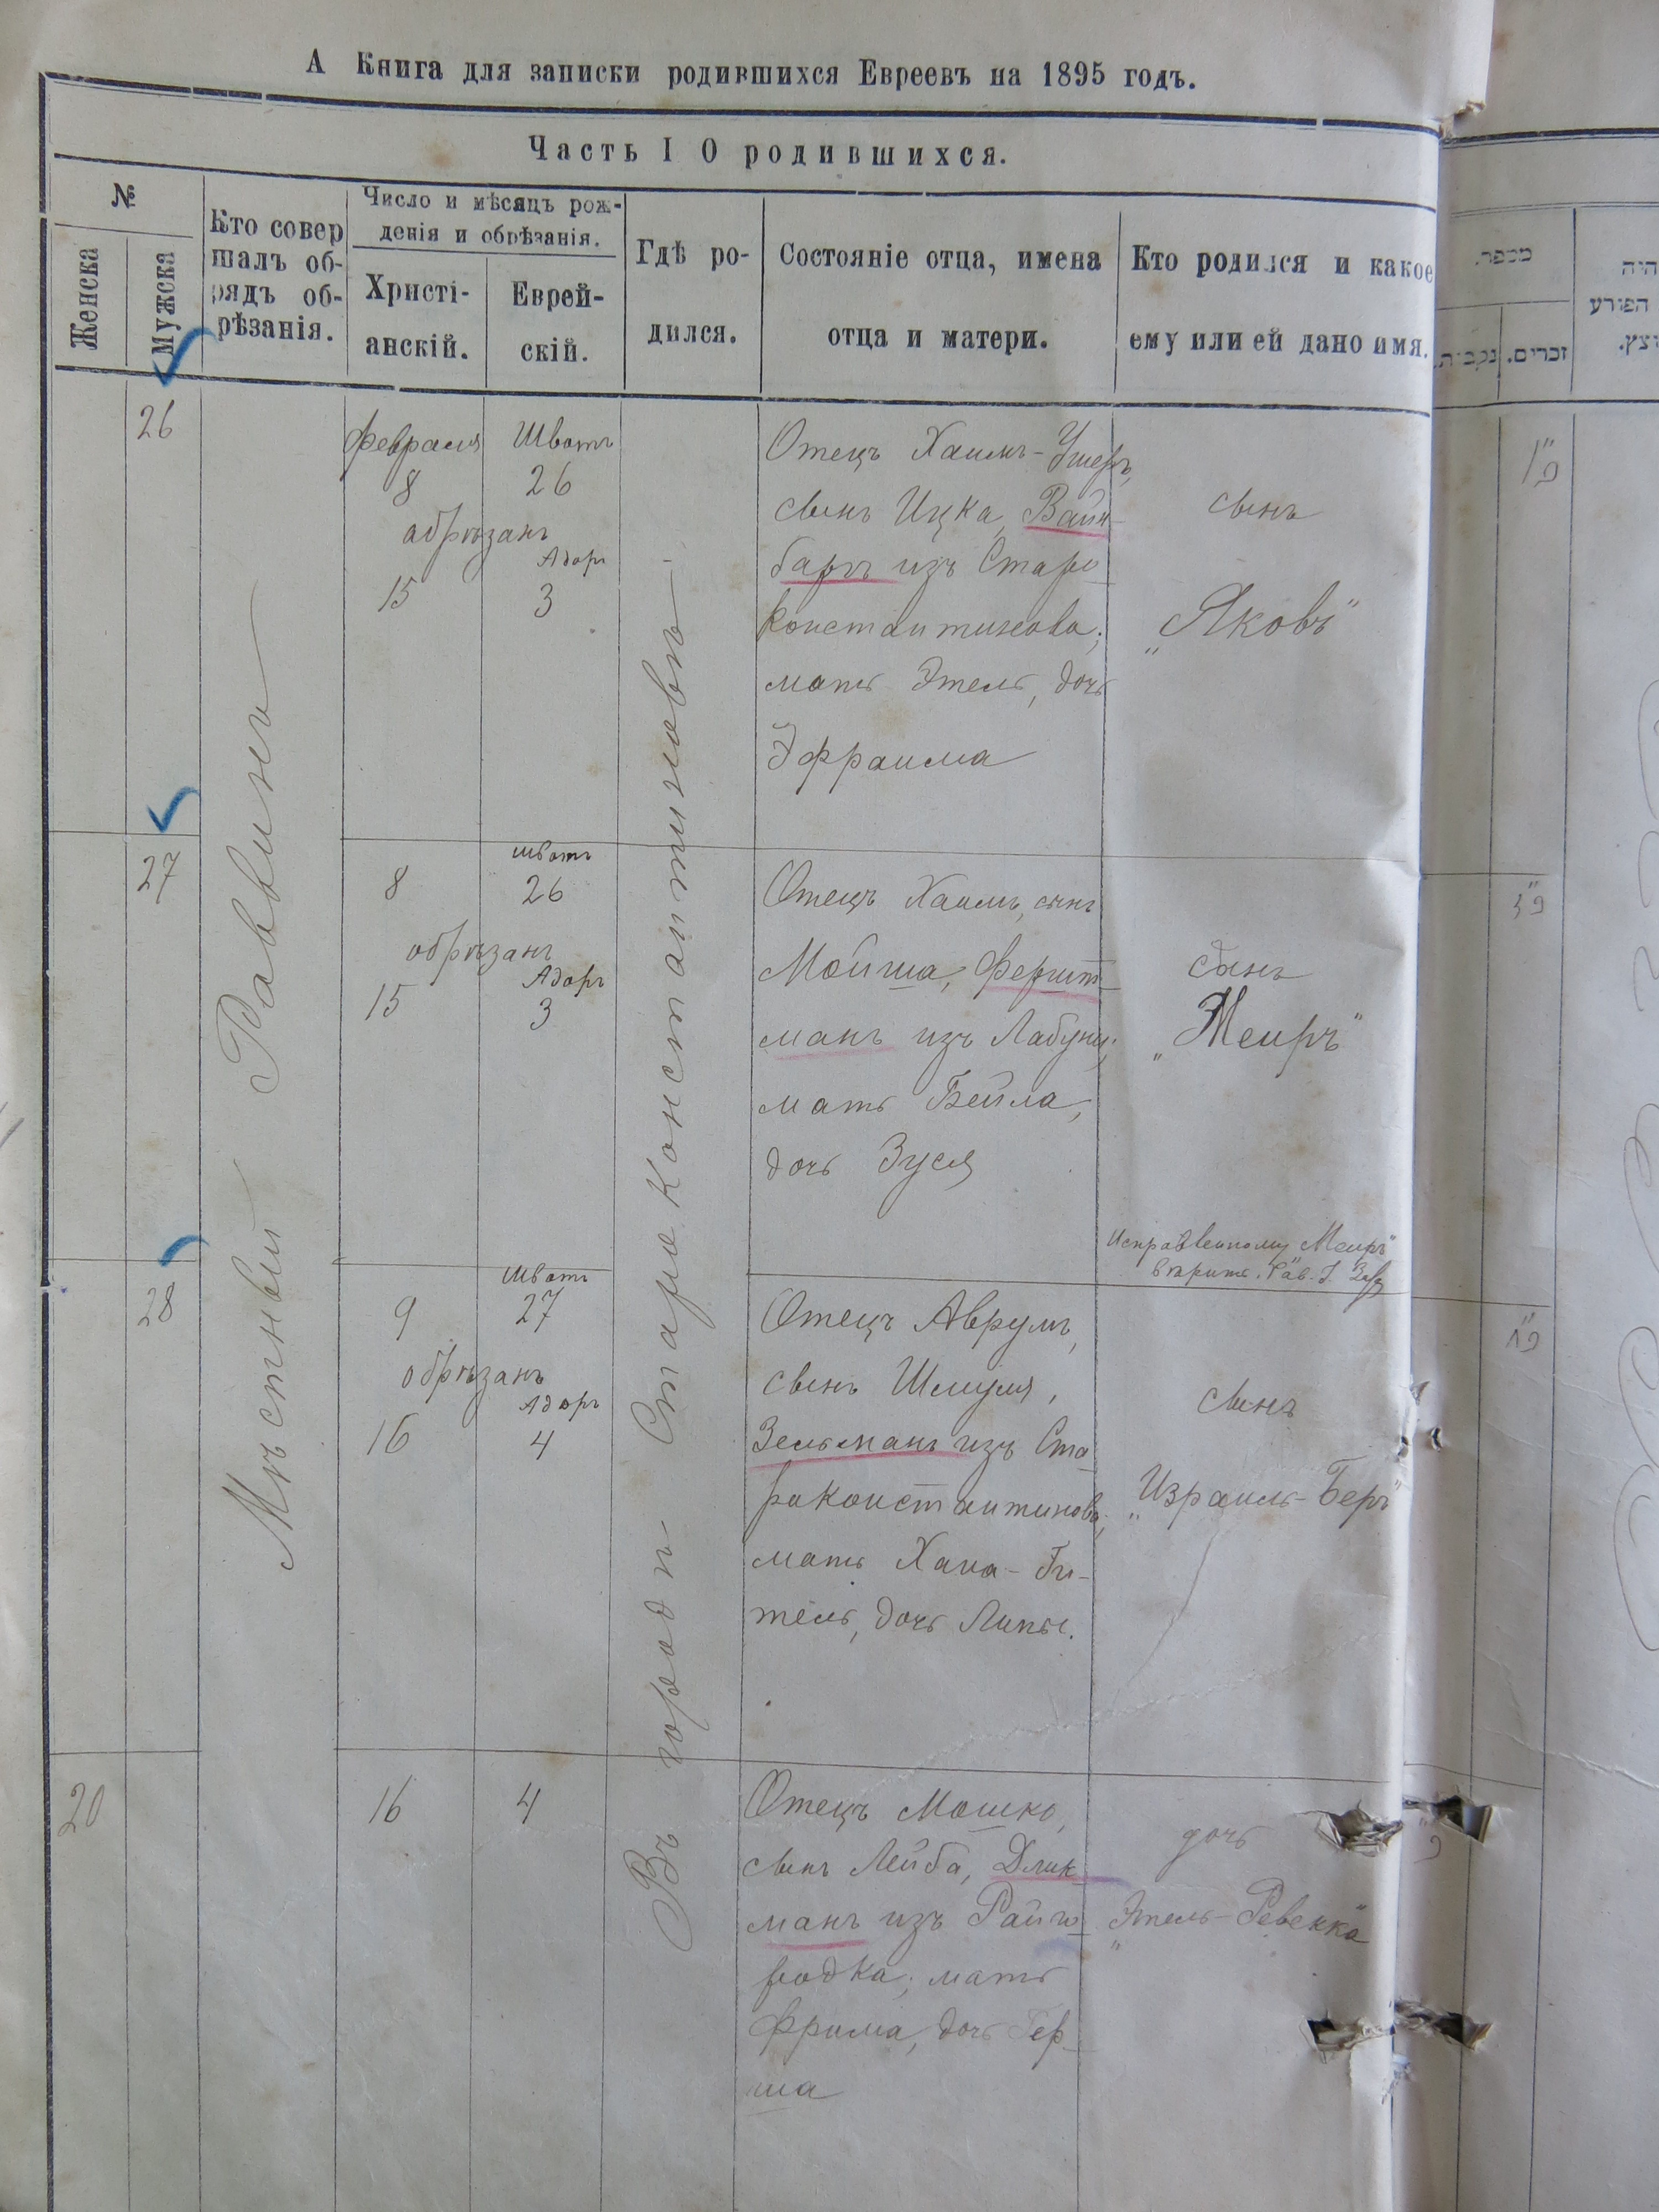 А Книга для записки родившихся Евреевъ на 1895 годъ.
Часть I О родившихся.
№
Женска
Мужска
Кто совер
шалъ об-
рядъ об-
рѣзанія.
Число и мѣсяцъ рож-
денія и обрѣзанія.
Христі-
анскій.
Еврей-
скій.
Гдѣ ро-
дился.
Состояніе отца, имена
отца и матери.
Кто родился и какое
ему или ей дано имя.
מספר.
נקבות.
זכרים.
Мѣстный Раввинъ
Въ городѣ Староконстантиновѣ
26
Февраля
8
обрѣзанъ
15
Шватъ
26
Адаръ
3
Отецъ Хаимъ-Ушеръ,
сынъ Ицка, Вайн-
баръ изъ Старо-
константинова;
мать Этель, дочь
Эфраима
сынъ
„Яковъ"
27
8
обрѣзанъ
15
Шватъ
26
Адаръ
3
Отецъ Хаимъ, сынъ
Мойша, Фершт-
манъ изъ Лабунь;
мать Бейла,
дочь Зуся
сынъ
„Меиръ"
Исправленному „Меиръ"
вѣрить. Рав.
28
9
обрѣзанъ
16
Шватъ
27
Адаръ
4
Отецъ Аврумъ,
сынъ Шмуля,
Зельманъ изъ Ста-
роконстантинова;
мать Хана-Ги-
тель, дочь Липы.
сынъ
„Израиль-Беръ"
20
16
4
Отецъ Мошко,
сынъ Лейба, Длик-
манъ изъ Райго-
родка; мать
Фрима, дочь Гер-
ша
дочь
„Этель-Ревекка"